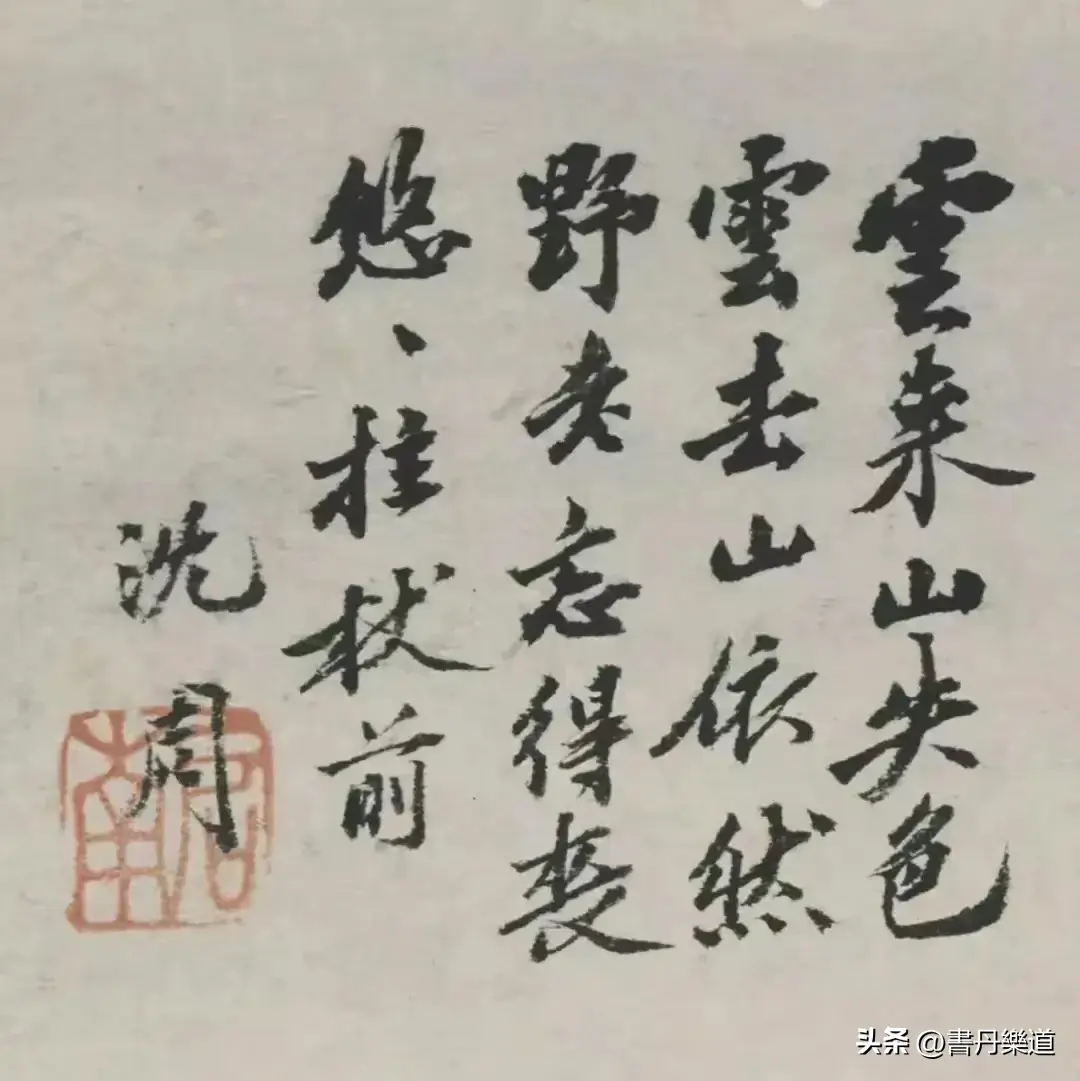 雲来山失色
雲去山依然
野老忘得喪
悠、拄杖前
沈周
啟南
头条 @書丹樂道